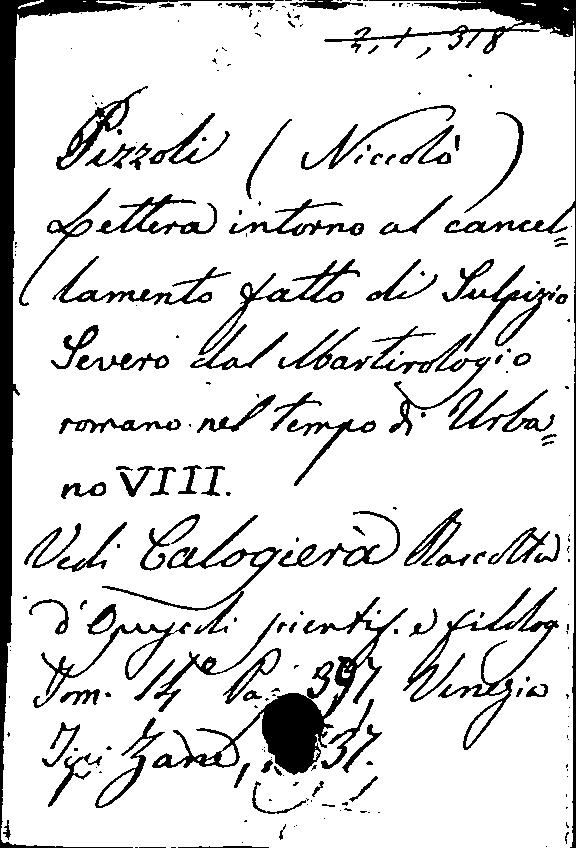 2, 1, 318
Pizzoli (Niccolò)
Lettera intorno al cancel=
lamento fatto di Sulpizio
Severo dal Martirologio
romano nel tempo di Urba=
no VIII.
Vedi Calogierà Raccolta
d'Opuscoli scientif. e filolog.
Tom. 14° Pa 397, Venezia
Tipi Zane, 37.